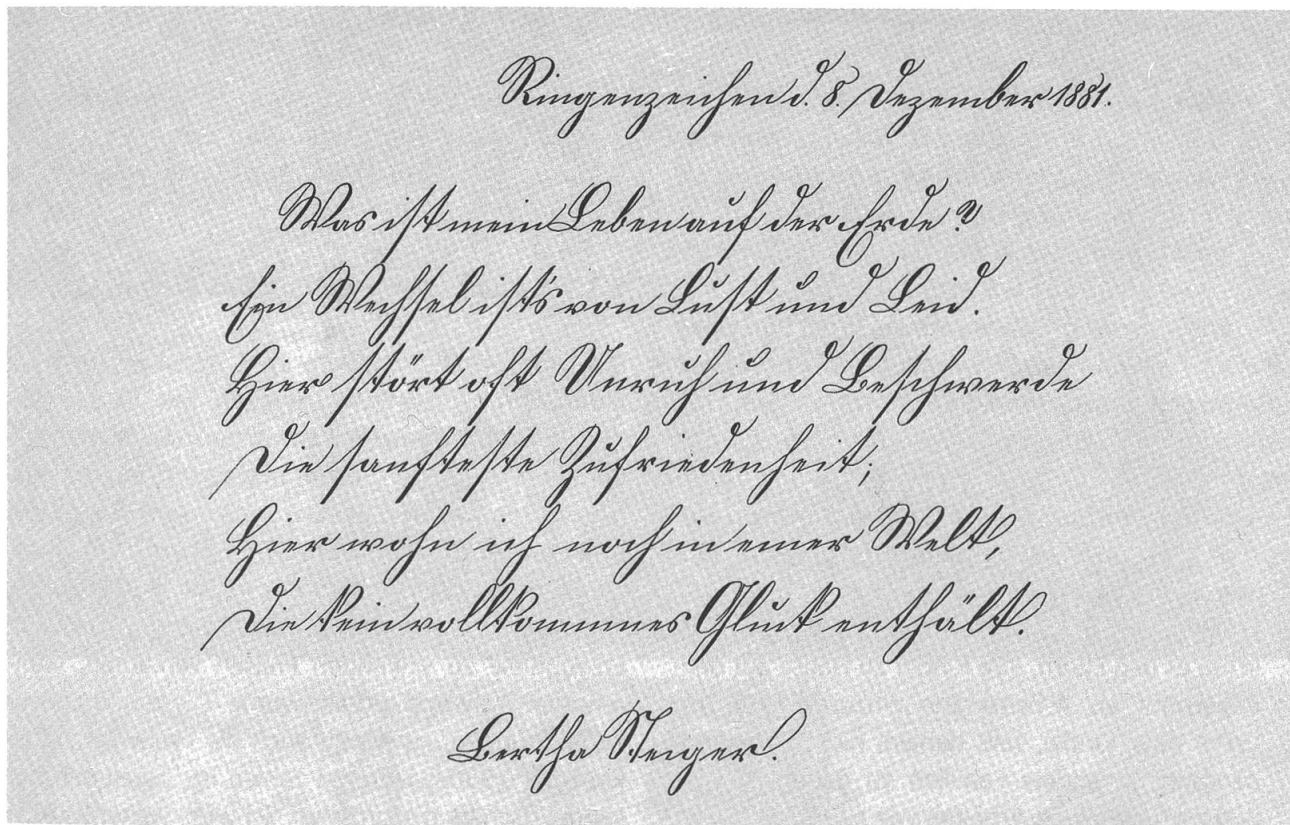 Ringenzeichen d. 8. Dezember 1881.
Was ist mein Leben auf der Erde?
Ein Wechsel ist's von Lust und Leid.
Hier stört oft Unruh und Beschwerde
Die sanfteste Zufriedenheit;
Hier wohn ich noch in einer Welt,
Die kein vollkommnes Glück enthält.
Bertha Steiger.